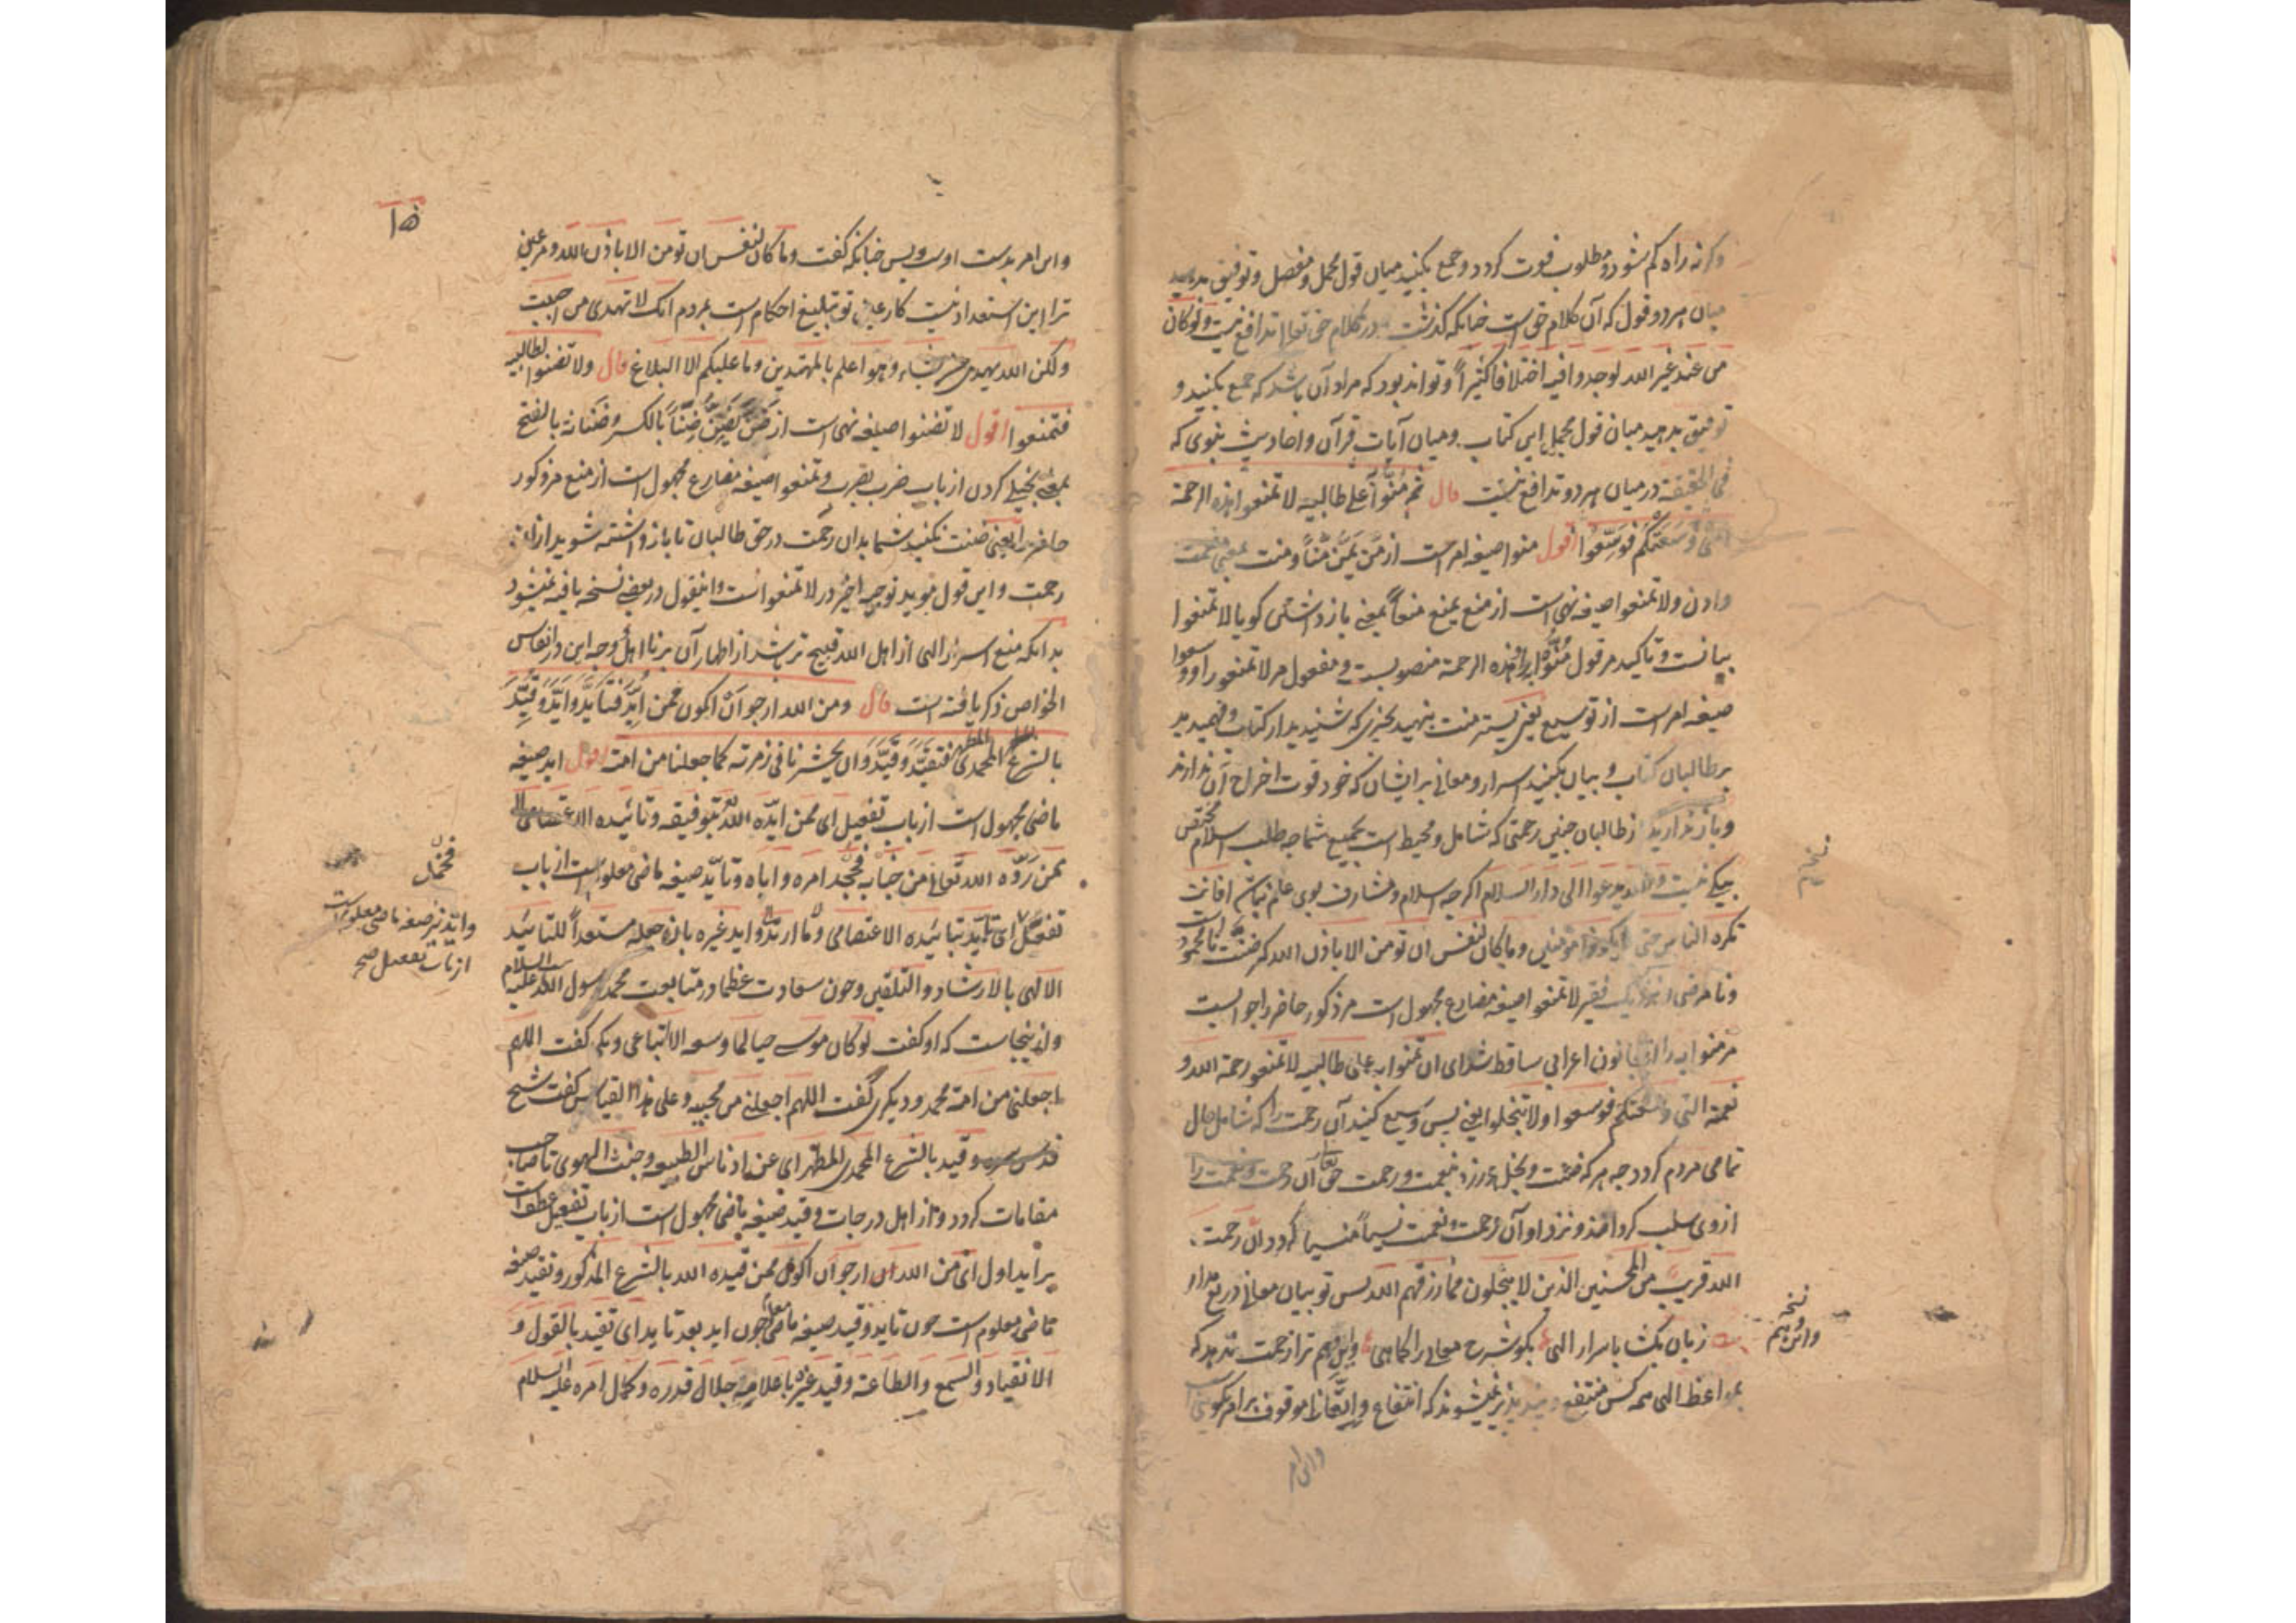 وکرنه راه کم شود و مطلوب فوت کردد و جمع بکنید میان قول مجمل و مفصل و توفیق بدهید
میان هر دو قول که آن کلام حق است چنانکه کذشت در کلام حق تعالی تدافع نیست ولو کان
من عند غیر الله لوجدوا فیه اختلافا کثیرا و تواند بود که مراد آن باشد که جمع بکنید و
توفیق بدهید میان قول مجمل این کتاب و میان آیات قرآن و احادیث نبوی که
فی الحقیقة در میان هر دو تدافع نیست قال ثم منوا به علی طالبیه لا تمنعوا هذه الرحمة
التی وسعتکم فوسعوا اقول منوا صیغه امر است از من یمن منا و منت بمعنی نعمت
دادن ولا تمنعوا صیغه نهی است از منع یمنع منعا بمعنی بازداشتن کویا لا تمنعوا
بیانست و تاکید مر قول منوا به را هذه الرحمة منصوبست و مفعول مر لا تمنعوا را و وسعوا
صیغه امر است از توسیع یعنی پستر منت بنهید بچیزی که شنیدید از کتاب و فهمیدید
بر طالبان کتاب و بیان بکنید اسرار و معانی بر ایشان که خود قوت اخراج آن ندارند
و باز ندارید از طالبان چنین رحمتی که شامل و محیط است بجمیع شما چه طلب اسلام مختص
بیکی نیست والله یدعوا الی دار السلام اکرچه اسلام و مشارف بوی علم نباشی افانت
تکره الناس حتی یکونوا مؤمنین وما کان لنفس ان تومن الا باذن الله که
و نامرضی لا تمنعوا صیغه مضارع مجهول است مر مذکور حاضر را جوابست
مر منوا به را قانون اعرابی ساقط شد ای ان تمنوا به علی طالبیه لا تمنعوا رحمة الله و
نعمة التی وسعتکم فوسعوا ولا تبخلوا یعنی پس وسیع کنید آن رحمت را که شامل حال
تمامی مردم کردد چه هر که ضنت و بخل ورزد بنعمت و رحمت حق تعالی آن رحمت و نعمت را
از وی سلب کرداند و نزد او آن رحمت و نعمت نسیا منسیا کردد ان رحمت
الله قریب من المحسنین الذین لا یبخلون مما رزقهم الله پس تو بیان معانی دریغ مدار
زبان بکشا باسرار الهی بکو شرح معانی را کماهی و این وهم ترا زحمت ندهد که
بمواعظ الهی همه کس منتفع و پند پذیر نمیشوند که انتفاع و اتعاظ موقوف بر امر تکوینی است
نسخه
نسخه
واین هم
واین امر
۱۵
و این امر بدست اوست و بس چنانکه کفت وما کان لنفس ان تومن الا باذن الله و مر عین
ترا این استعداد نیست کار عین تو تبلیغ احکام است بمردم انک لا تهدی من احببت
ولکن الله یهدی من یشاء و هو اعلم بالمهتدین وما علیکم الا البلاغ قال ولا تضنوا لطالبیه
فتمنعوا اقول لا تضنوا صیغه نهی است از ضن یضن ضنا بالکسر و ضنانة بالفتح
بمعنی بخیلی کردن از باب ضرب یضرب و تمنعوا صیغه مضارع مجهول است از منع مر مذکور
حاضر را یعنی ضنت نکنید شما بدان رحمت در حق طالبان تا باز داشته شوید از ان
رحمت و این قول موید توجیه اخیر در لا تمنعوا است و اینقول در بعضی نسخه یافته نمیشود
بدانکه منع اسرار الهی از اهل الله قبیح تر باشد از اظهار آن بر نااهل و وجه این در انفاس
الخواص ذکر یافته است قال ومن الله ارجو ان اکون ممن اید فتاید واید و قید
بالشرع المحمدی المطهر فتقید و قید وان یحشرنا فی زمرته کما جعلنا من امته اقول اید صیغه
ماضی مجهول است از باب تفعیل ای ممن ایده الله بتوفیقه و تائیده الاعتصامی لا
ممن رده الله تعالی من جنابه فجحد امره و اباه و تاید صیغه ماضی معلوم است از باب
تفعل ای تاید بتائیده الاعتصامی وما ارتد واید غیره بان جعله مستعدا للتائید
الالهی بالارشاد و التلقین و چون سعادت عظما در متابعت محمد رسول الله علیه السلام
و از ینجاست که او کفت لو کان موسی حیا لما وسعه الا اتباعی و یکی کفت اللهم
اجعلنی من امة محمد و دیکری کفت اللهم اجعلنی من محبیه و علی هذا القیاس کفت شیخ
قدس سره و قید بالشرع المحمدی المطهر ای عن ادناس الطبیعه و خبث الهوی تا صاحب
مقامات کردد و از اهل درجات و قید صیغه ماضی مجهول است از باب تفعیل عطف است
بر اید اول ای من الله ارجو ان اکون ممن قیده الله بالشرع المذکور و تقید صیغه
ماضی معلوم است چون تاید و قید صیغه ماضی معلوم چون اید بعد تاید ای تقید بالقول و
الانقیاد و السمع والطاعة و قید غیره باعلامه جلال قدره و کمال امره علیه السلام
واید نیز صیغه ماضی معلوم است
از باب تفعیل صح